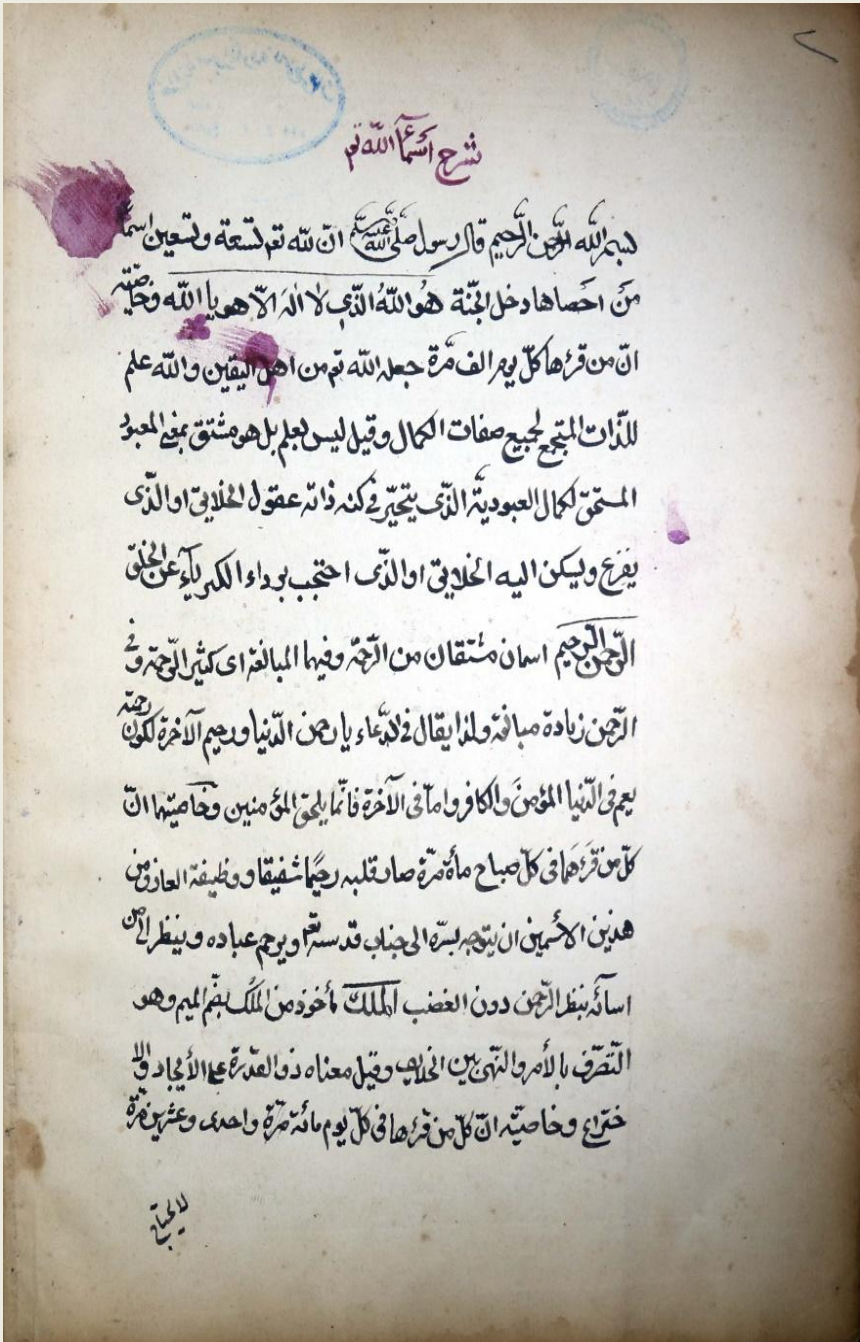 ٢
شرح اسماء الله تع
بسم الله الرحمن الرحيم قال رسول صلى الله عليه وسلم ان لله تع تسعة وتسعين اسمًا
مَن احَصاها دخل الجنّة هُو اللهُ الذّي لا الٰهَ الاّ هو يا الله وخاصيّته
انّ من قرءها كلّ يوم الف مّرة جعله الله تع من اهل اليقين والله علم
للذّات المستجمع لجميع صفات الكمال وقيل ليس بعلم بل هو مشتق بمعنى المعبود
المستحق لكمال العبوديّة الذّى يتحيّر فى كنه ذاته عقول الخلايق او الذّى
يفزع ويسكن اليه الخلايق او الذّى احتجب برداء الكبرياء عن الخلق
الرّحمن الرّحيم اسمان مشتقان من الرّحمة وفيهما المبالغة اى كثير الرّحمة وفى
الرّحمن زيادة مبالغة ولذا يقال فى الدّعاء يا رحمن الدّنيا ورحيم الآخرة لكون رحمته
يعم فى الدّنيا المؤمنَ والكافر وامّا فى الآخرة فانّما يلحق المؤمنين وخاصيّتهما انّ
كلّ من قرءَهَما فى كلّ صباح مأة مّرة صار قلبه رحيمًا شفيقا ووظيفة العارف من
هذين الأسمين ان يتوجه بسّره الى جناب قدسه تع ويرحم عباده وينظر الى من
اسآئه بنظر الرّحمن دون الغضب الملك مأخوذ من المُلك بضّم الميم وهو
التّصرّف بالأمر والنّهى بين الخلايق وقيل معناه ذو القدرة على الأيجاد والا
ختراع وخاصيّته انّ كلّ من قرءها فى كلّ يوم مائة مّرة واحدى وعشرين مّرة
لا يحتاج